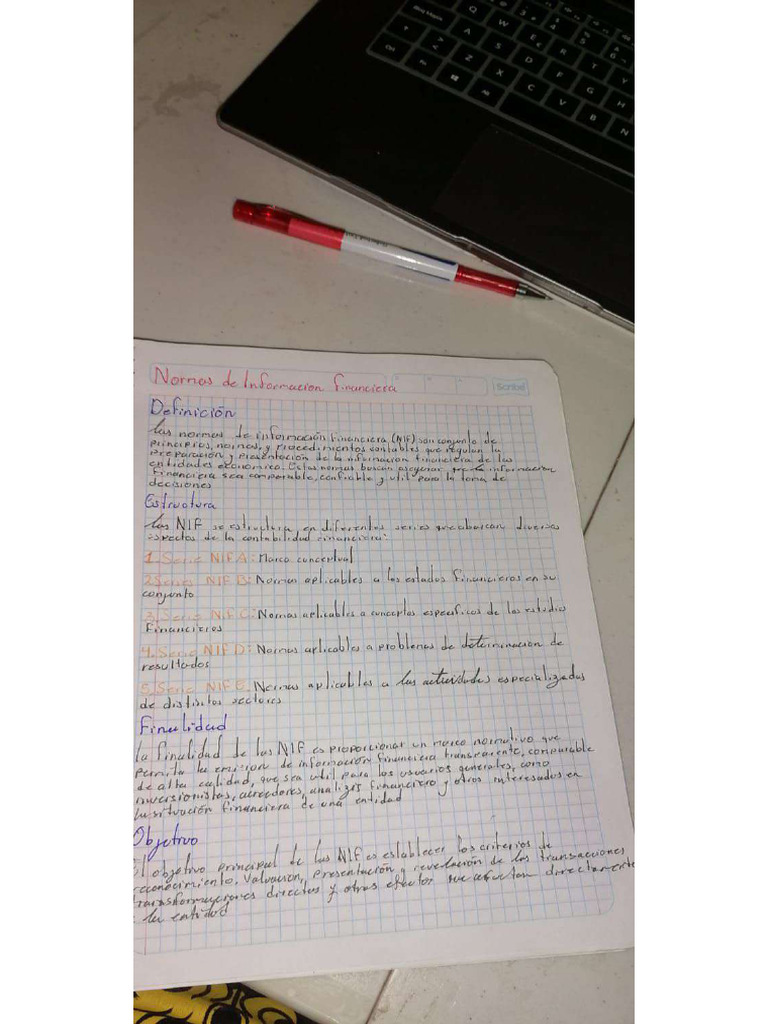 Normas de Informacion financiera
Scribe
Definición
Las normas de información financiera (NIF) son conjunto de
principios, normas, y procedimientos contables que regulan la
preparación y presentación de la información financiera de las
entidades economico. Estas normas buscan asegurar que la informacion
financiera sea comparable, confiable y util para la toma de
decisiones
Estructura
Las NIF se estructura en diferentes series que abarcan diversos
aspectos de la contabilidad financiera:
1. Serie NIF A: Marco conceptual
2. Series NIF B: Normas aplicables a los estados financieros en su
conjunto
3. Serie NIF C: Normas aplicables a conceptos especificos de los estudios
financieros
4. Serie NIF D: Normas aplicables a problemas de determinacion de
resultados
5. Serie NIF E. Normas aplicables a las actividades especializadas
de distintos sectores
Finalidad
la finalidad de las NIF es proporcionar un marco normativo que
permita la emision de información financiera transparente, comparable
de alta calidad, que sea util para los usuarios generales, como
inversionistas, acreedores, analizis financiero y otros interesados en
la situación financiera de una entidad
Objetivo
El objetivo principal de las NIF es establecer los criterios de
reconocimiento, valuacion, presentación y revelación de las transacciones
transformaciones directas y otros efectos que afectan directamente
a la entidad